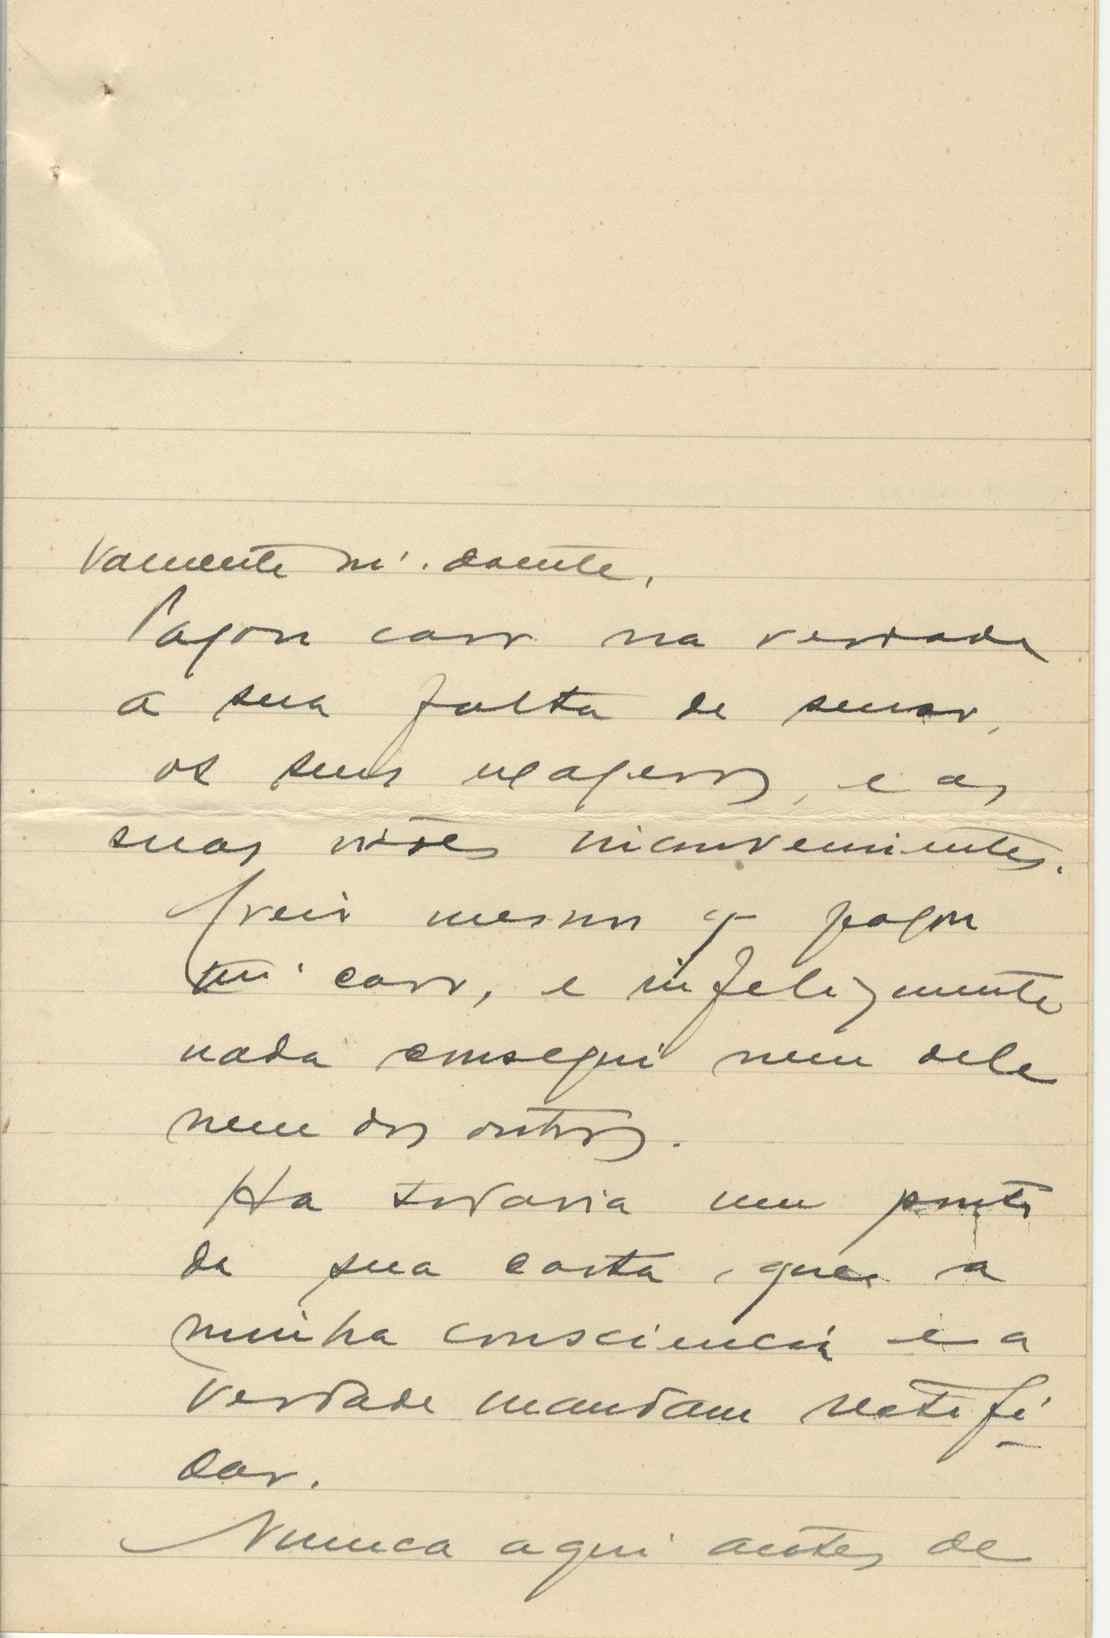 vamente mᵗᵒ. doente.
Pagou caro na verdade
a sua falta de senso,
os seus exageros, e as
suas visões inconvenientes.
Creio mesmo q pagou
mᵗᵒ caro, e infelizmente
nada consegui nem dele
nem dos outros.
Ha todavia um ponto
da sua carta, que a
minha consciencia e a
verdade mandam retefi-
car.
Nunca aqui antes de